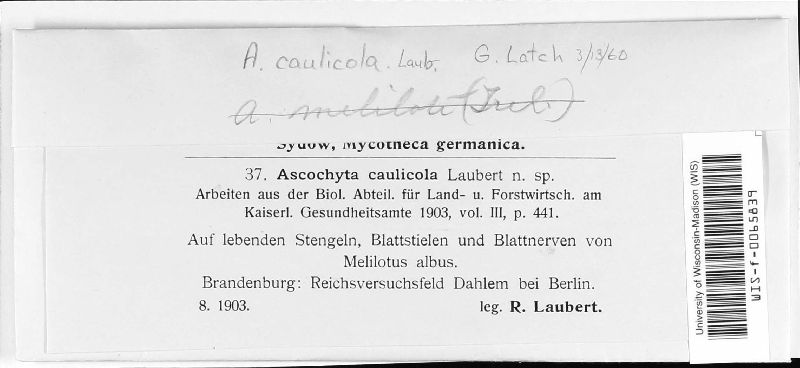 A. caulicola. Laub. G. Latch 3/13/60
A. meliloti (Trel.)
Sydow, Mycotheca germanica.
37. Ascochyta caulicola Laubert n. sp.
Arbeiten aus der Biol. Abteil. für Land- u. Forstwirtsch. am
Kaiserl. Gesundheitsamte 1903, vol. III, p. 441.
Auf lebenden Stengeln, Blattstielen und Blattnerven von
Melilotus albus.
Brandenburg: Reichsversuchsfeld Dahlem bei Berlin.
8. 1903. leg. R. Laubert.
University of Wisconsin-Madison (WIS)
WIS-f-0065839